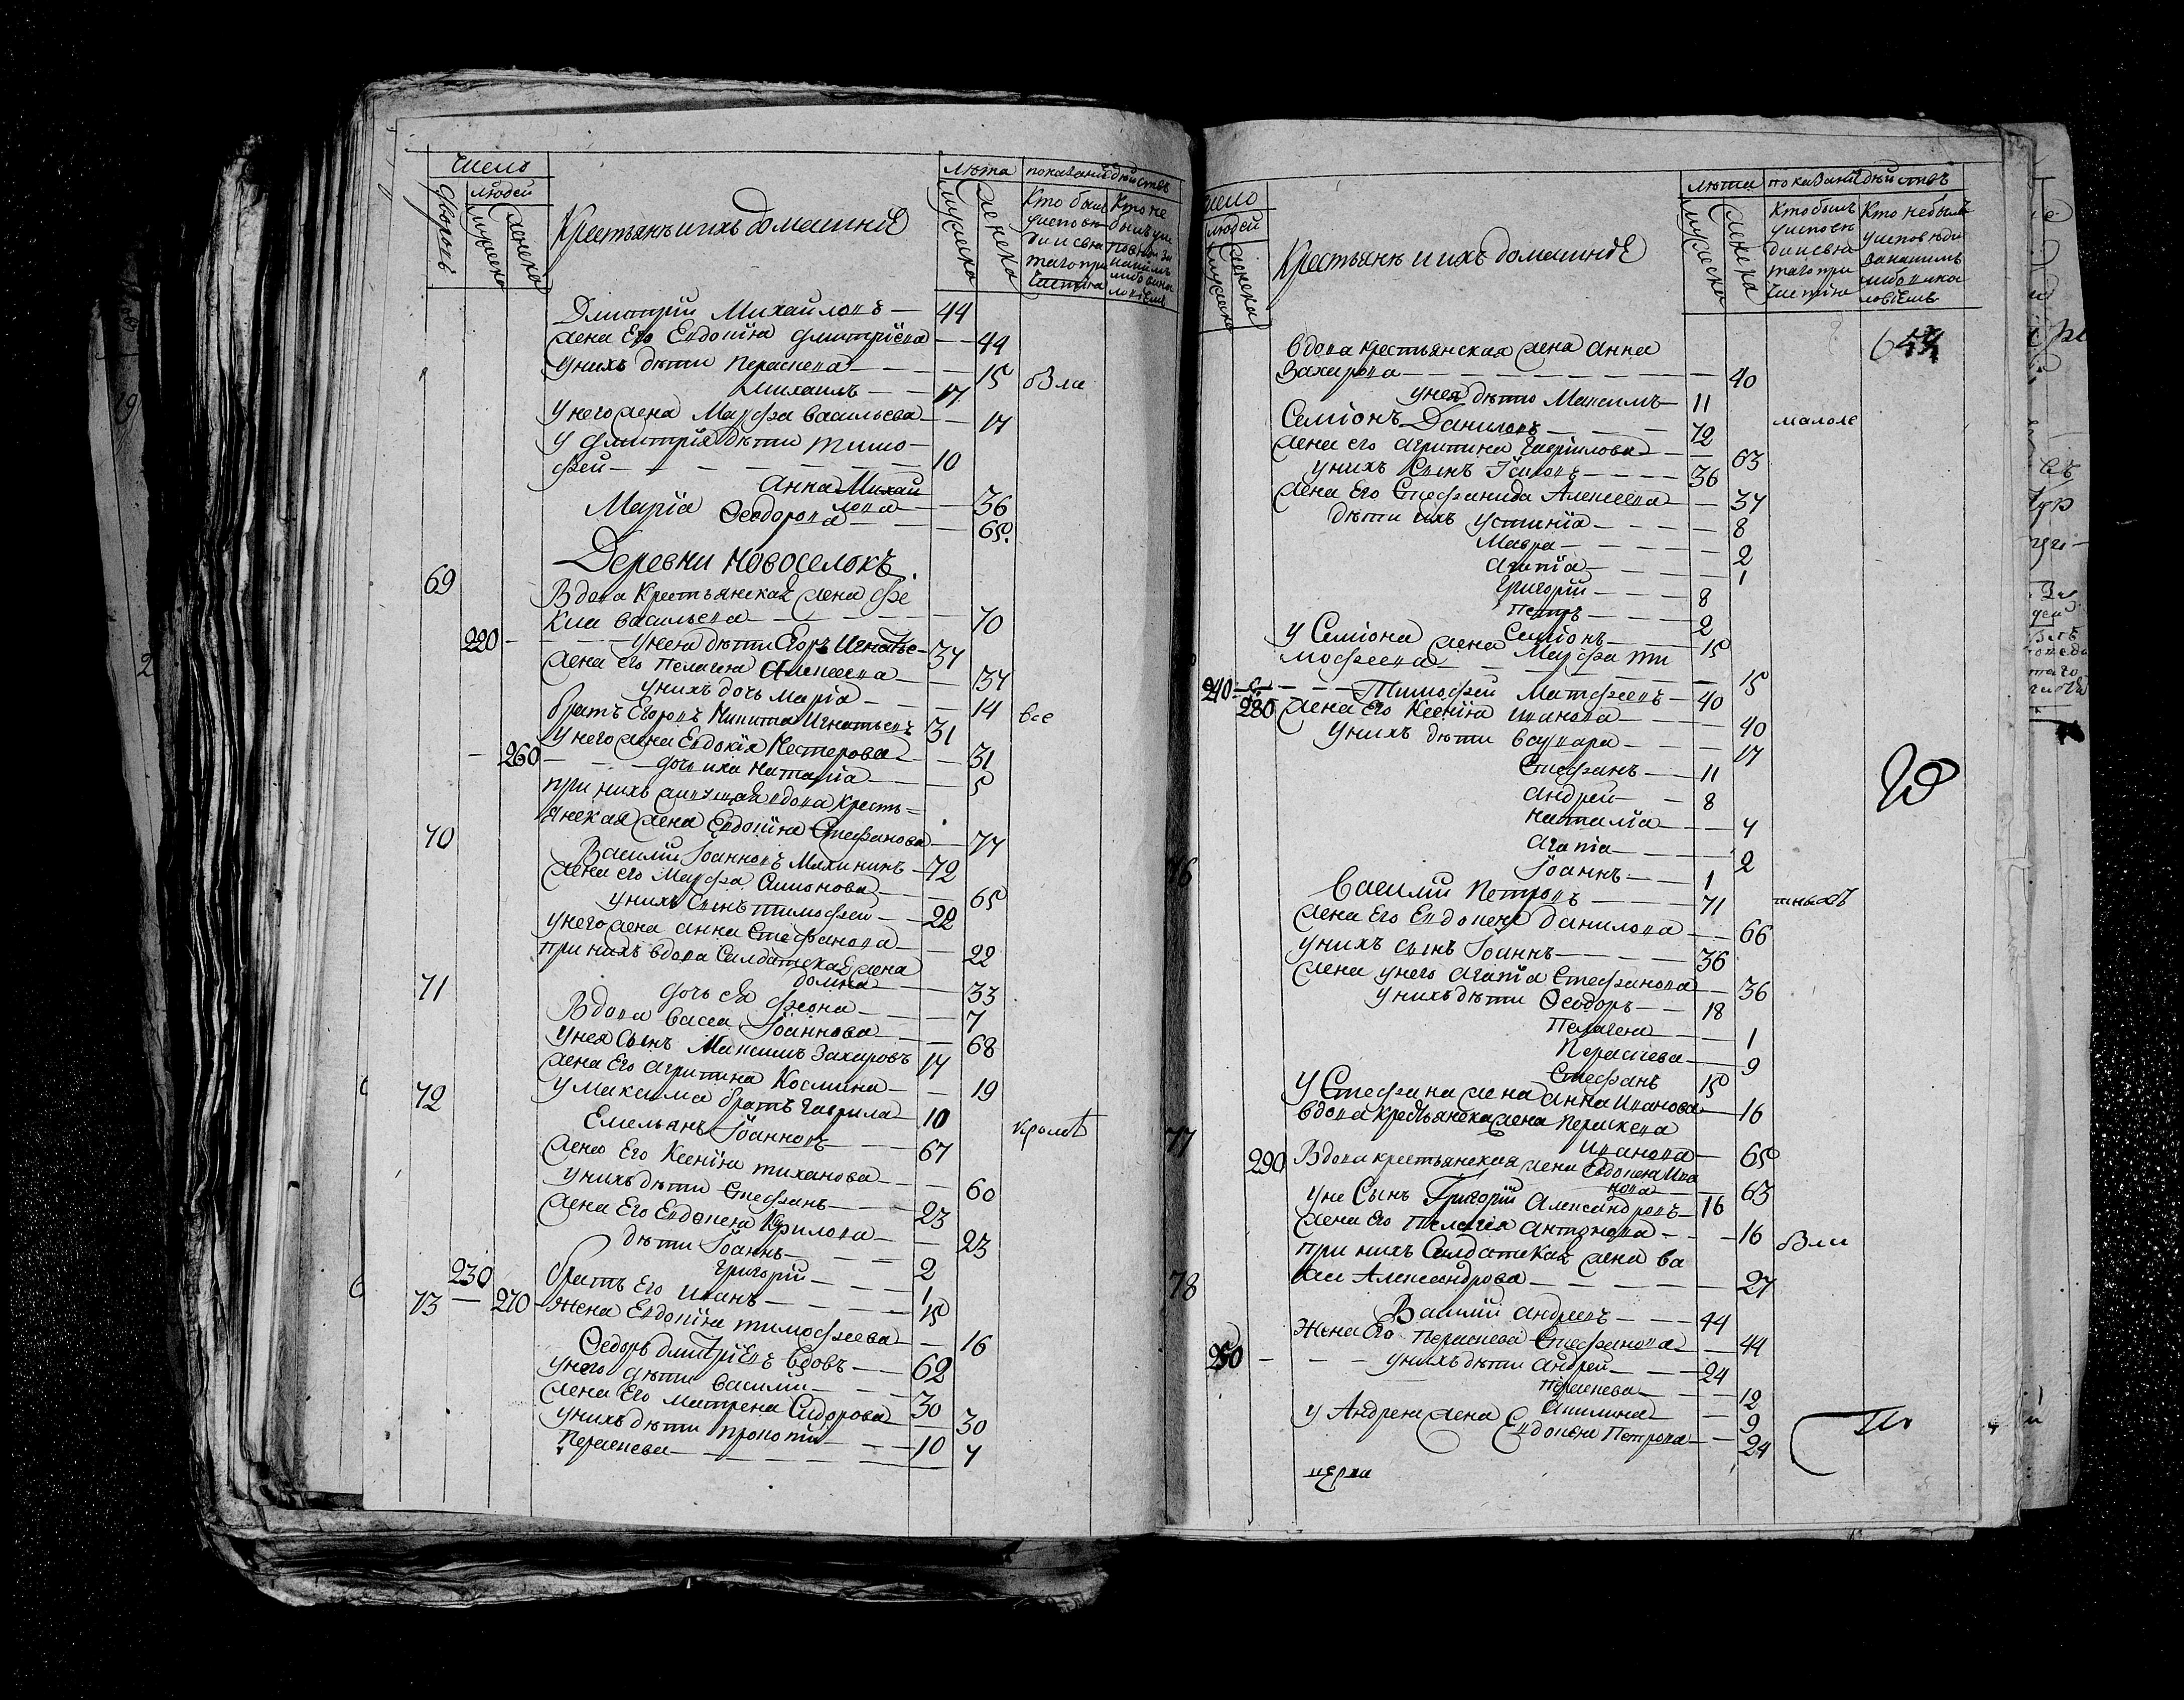 Число
Дворовъ
людей
мужеска
женска
Крестьянъ и ихъ домашнiе
лѣта
мужеска
женска
показанiе дѣйствъ
Кто былъ
у исповѣ
ди и свя
таго при
частiя
Кто не
былъ
Дмитрiй Михайловъ — 44
жена Его Евдокiя Дмитрiева — 44
у нихъ дѣти Параскева — 15 обли
Михаилъ — 17
у него жена Марфа Васильева — 17
у Дмитрiя дѣти Тимо-
фей — 10
Анна Михай
лова — 36
Марiя Ѳеодорова — 65.
Деревни Новоселокъ
69 Вдова Крестьянская жена Фе
кла Васильева — 70
220 — у нея дѣти Егоръ Игнатье — 37
жена его Пелагея Алексеева — 37
у нихъ дочь Марiя — 14 все
братъ Егоровъ Никита Игнатьевъ 31
у него жена Евдокiя Нестерова — 31
260 — дочь ихъ Наталiя — 5
при нихъ живущая вдова кресть-
янская жена Евдокiя Стефанова — 77
70 Василiй Iоанновъ Махининъ — 72
жена его Марфа Симонова — 65
у нихъ Сынъ Тимофей — 22
у него жена Анна Стефанова — 22
при нихъ вдова Салдатская жена
Домна — 33
дочь ея — 7
71 Вдова Васса Iоаннова — 68
у нея Сынъ Максимъ Захаровъ 17
жена Его Агрипина Космина — 19
у Максима братъ Гаврила — 10
72 Емельянъ Iоанновъ — 67
жена Его Ксенiя Тиханова — 60
у нихъ дѣти Стефанъ — 23
жена Его Евдокея Кирилова — 23
дѣти Iоаннъ — 2
Григорiй — 1
230 братъ Его Иванъ — 15
270 — жена Евдокiя Тимофеева — 16
73 Ѳедоръ Дмитрiевъ Вдовъ — 62
у него дѣти Василiй — 30
жена Его Матрена Сидорова — 30
у нихъ дѣти Прокопiй — 10
Параскева — 7
Число
людей
мужеска
женска
Крестьянъ и ихъ домашнiе
лѣта
мужеска
женска
показанiе дѣйствъ
Кто былъ
у исповѣ
ди и свя
таго при
частiя
Кто не былъ
у исповѣди
за какимъ
либо вина
словiемъ
вдова крестьянская жена Анна
Захарова — 40
у нея дѣти Максимъ — 11
Семiонъ Даниловъ — 72 малоле
жена его Агрипина Гаврилова — 63
у нихъ Сынъ — 36
жена Его Стефанида Алексеева — 37
дѣти ихъ Устинiя — 8
Мавра — 2
Агапiя — 1
Григорiй — 8
Петръ — 2
Семiонъ — 15
у Семiона жена Марфа Ти
мофеева — 15
240 — Тимофей Матфеевъ — 40
280 жена Его Ксенiя Иванова — 40
у нихъ дѣти Варвара — 17
Стефанъ — 11
Андрей — 8
Наталiя — 4
Агапiя — 2
Iоаннъ — 1
76 Василiй Петровъ — 71 тныхъ
жена Его Евдокея Данилова — 66
у нихъ сынъ Iоаннъ — 36
жена у него Агапiя Стефанова — 36
у нихъ дѣти Ѳеодоръ — 18
Пелагея — 1
Параскева — 9
Стефанъ 15
у Стефана жена Анна Иванова — 16
вдова крестьянска жена Параскева
Иванова — 65
77
290 Вдова крестьянская жена Евдокея Ива
нова — 63
у не Сынъ Григорiй Александровъ — 16
жена Его Пелагея Антонова — 16 обли
при нихъ Салдатская жена Ва
са Александрова — 27
78 Василiй Андреевъ — 44
жена Его Параскева Стефанова — 44
250 — у нихъ дѣти Андрей — 24
Параскева — 12
Акилина — 9
у Андрея жена Евдокея Петрова — 24
церкв